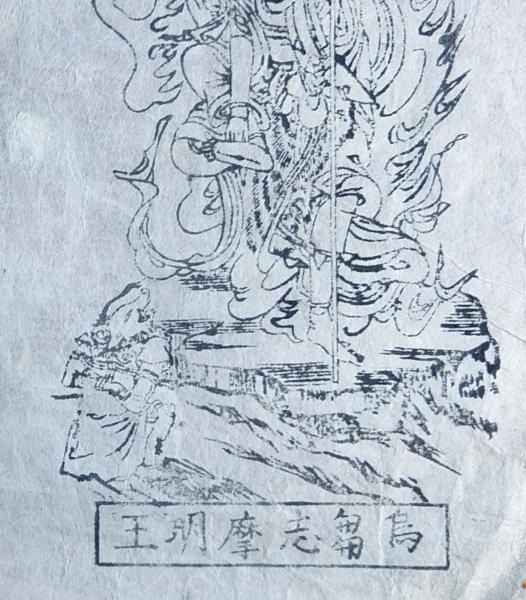 烏芻志摩明王